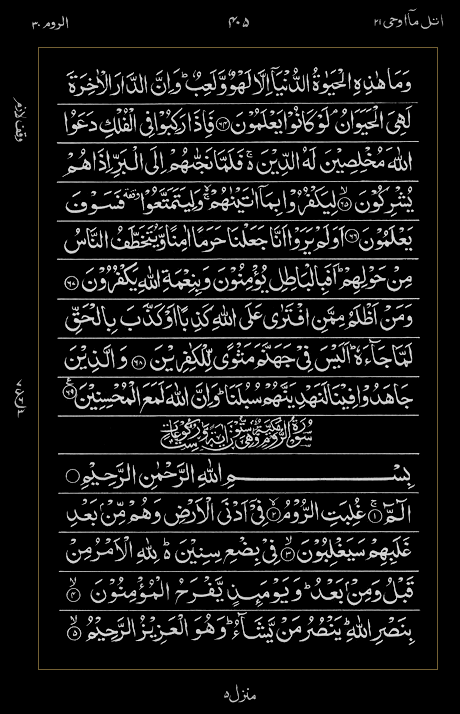 اتل مآ اوحی ۲۱
۴۰۵
الروم ۳۰
وَمَا هٰذِهِ الْحَيٰوةُ الدُّنْيَاۤ اِلَّا لَهْوٌ وَّلَعِبٌ ؕ وَاِنَّ الدَّارَ الْاٰخِرَةَ
لَهِيَ الْحَيَوَانُ ۘ لَوْ كَانُوْا يَعْلَمُوْنَ ﴿۶۴﴾ فَاِذَا رَكِبُوْا فِي الْفُلْكِ دَعَوُا
اللّٰهَ مُخْلِصِيْنَ لَهُ الدِّيْنَ ۬ۚ فَلَمَّا نَجّٰىهُمْ اِلَى الْبَرِّ اِذَا هُمْ
يُشْرِكُوْنَ ﴿۶۵﴾ لِيَكْفُرُوْا بِمَاۤ اٰتَيْنٰهُمْ ۙۚ وَلِيَتَمَتَّعُوْا ۥ وقفة فَسَوْفَ
يَعْلَمُوْنَ ﴿۶۶﴾ اَوَلَمْ يَرَوْا اَنَّا جَعَلْنَا حَرَمًا اٰمِنًا وَّيُتَخَطَّفُ النَّاسُ
مِنْ حَوْلِهِمْ ؕ اَفَبِالْبَاطِلِ يُؤْمِنُوْنَ وَبِنِعْمَةِ اللّٰهِ يَكْفُرُوْنَ ﴿۶۷﴾
وَمَنْ اَظْلَمُ مِمَّنِ افْتَرٰى عَلَى اللّٰهِ كَذِبًا اَوْ كَذَّبَ بِالْحَقِّ
لَمَّا جَآءَهٗ ؕ اَلَيْسَ فِيْ جَهَنَّمَ مَثْوًى لِّلْكٰفِرِيْنَ ﴿۶۸﴾ وَالَّذِيْنَ
جَاهَدُوْا فِيْنَا لَنَهْدِيَنَّهُمْ سُبُلَنَا ؕ وَاِنَّ اللّٰهَ لَمَعَ الْمُحْسِنِيْنَ ﴿۶۹﴾ ع
سُوْرَةُ الرُّوْمِ مَكِّيَّةٌ وَّهِيَ سِتُّوْنَ اٰيَةً وَّسِتُّ رُكُوْعَاتٍ
بِسْمِ اللّٰهِ الرَّحْمٰنِ الرَّحِيْمِ
الٓمّٓ ۚ﴿۱﴾ غُلِبَتِ الرُّوْمُ ۙ﴿۲﴾ فِيْۤ اَدْنَى الْاَرْضِ وَهُمْ مِّنْ بَعْدِ
غَلَبِهِمْ سَيَغْلِبُوْنَ ۙ﴿۳﴾ فِيْ بِضْعِ سِنِيْنَ ۬ؕ لِلّٰهِ الْاَمْرُ مِنْ
قَبْلُ وَمِنْۢ بَعْدُ ؕ وَيَوْمَئِذٍ يَّفْرَحُ الْمُؤْمِنُوْنَ ۙ﴿۴﴾
بِنَصْرِ اللّٰهِ ؕ يَنْصُرُ مَنْ يَّشَآءُ ؕ وَهُوَ الْعَزِيْزُ الرَّحِيْمُ ۙ﴿۵﴾
وقف لازم
منزل ۵